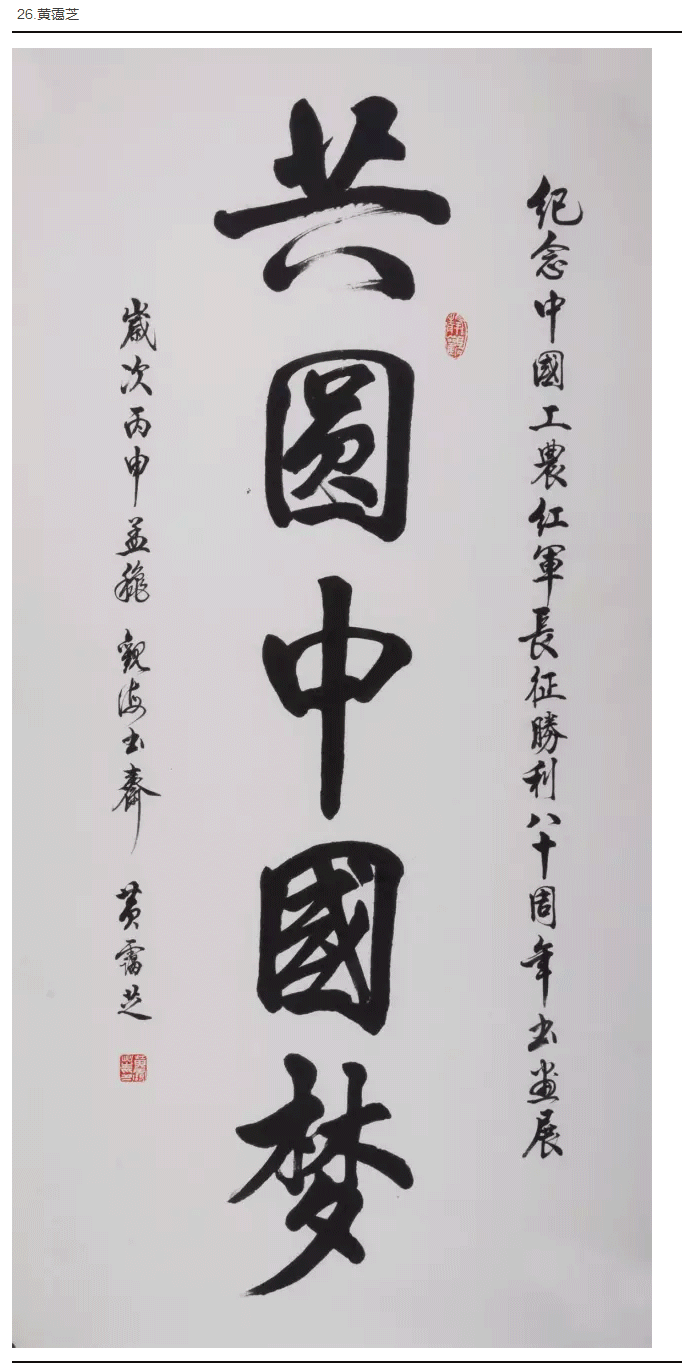 26.黄霭芝
紀念中國工農紅軍長征勝利八十周年书畫展
共圓中國梦
歲次丙申孟穐 觀海书齋 黄霭芝